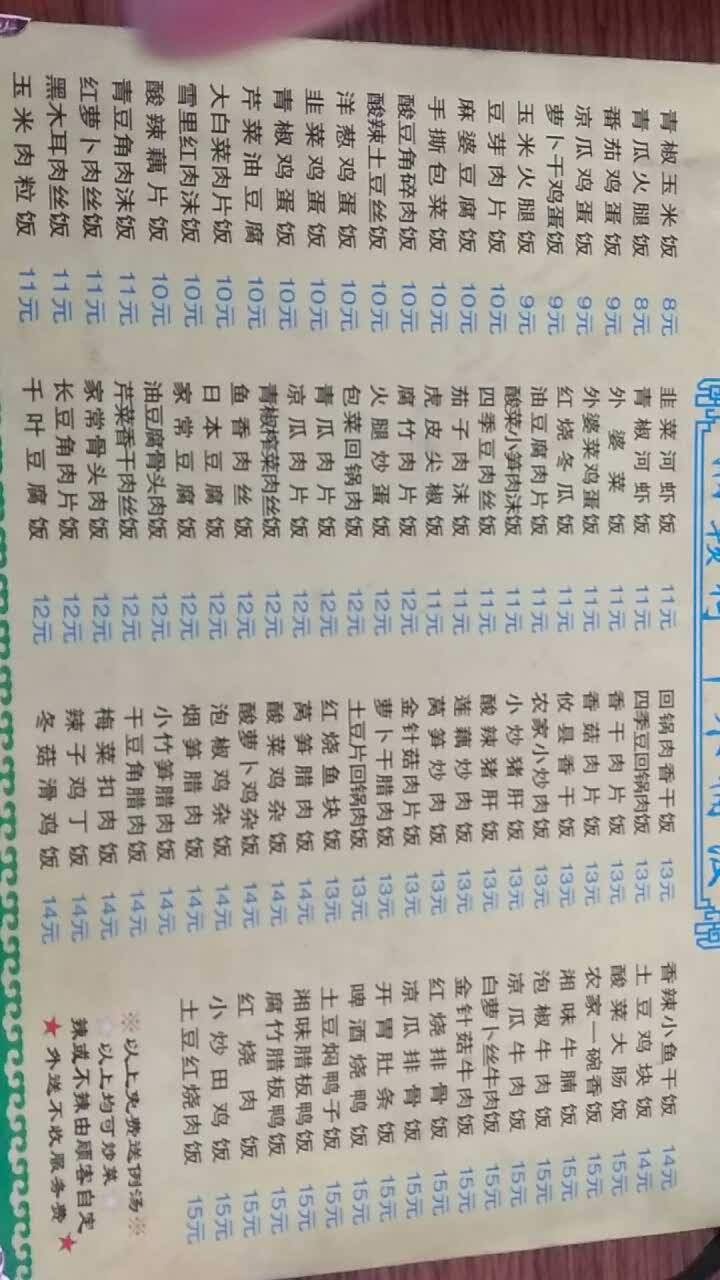 青椒玉米饭 8元
青瓜火腿饭 8元
番茄鸡蛋饭 9元
凉瓜鸡蛋饭 9元
萝卜干鸡蛋饭 9元
玉米火腿饭 9元
豆芽肉片饭 10元
麻婆豆腐饭 10元
手撕包菜饭 10元
酸豆角碎肉饭 10元
酸辣土豆丝饭 10元
洋葱鸡蛋饭 10元
韭菜鸡蛋饭 10元
青椒鸡蛋饭 10元
芹菜油豆腐 10元
大白菜肉片饭 10元
雪里红肉沫饭 10元
酸辣藕片饭 10元
青豆角肉沫饭 11元
红萝卜肉丝饭 11元
黑木耳肉丝饭 11元
玉米肉粒饭 11元
韭菜河虾饭 11元
青椒河虾饭 11元
外婆菜饭 11元
外婆菜鸡蛋饭 11元
红烧冬瓜饭 11元
油豆腐肉片饭 11元
酸菜小笋肉沫饭 11元
四季豆肉丝饭 11元
茄子肉沫饭 11元
虎皮尖椒饭 11元
腐竹肉片饭 12元
火腿炒蛋饭 12元
包菜回锅肉饭 12元
青瓜肉片饭 12元
凉瓜肉片饭 12元
青椒榨菜肉丝饭 12元
鱼香肉丝饭 12元
日本豆腐饭 12元
家常豆腐饭 12元
油豆腐骨头肉饭 12元
芹菜香干肉丝饭 12元
家常骨头肉饭 12元
长豆角肉片饭 12元
千叶豆腐饭 12元
回锅肉香干饭 13元
四季豆回锅肉饭 13元
香干肉片饭 13元
香菇肉片饭 13元
攸县香干饭 13元
农家小炒肉饭 13元
小炒猪肝饭 13元
酸辣猪肝饭 13元
莲藕炒肉饭 13元
莴笋炒肉饭 13元
金针菇肉片饭 13元
萝卜干腊肉饭 13元
土豆片回锅肉饭 13元
红烧鱼块饭 13元
莴笋腊肉饭 14元
酸菜鸡杂饭 14元
酸萝卜鸡杂饭 14元
泡椒鸡杂饭 14元
烟笋腊肉饭 14元
小竹笋腊肉饭 14元
干豆角腊肉饭 14元
梅菜扣肉饭 14元
辣子鸡丁饭 14元
冬菇滑鸡饭 14元
香辣小鱼干饭 14元
土豆鸡块饭 14元
酸菜大肠饭 15元
农家一碗香饭 15元
湘味牛腩饭 15元
泡椒牛肉饭 15元
凉瓜牛肉饭 15元
白萝卜丝牛肉饭 15元
金针菇牛肉饭 15元
红烧排骨饭 15元
凉瓜排骨饭 15元
开胃肚条饭 15元
啤酒烧鸭饭 15元
土豆焖鸭子饭 15元
湘味腊板鸭饭 15元
腐竹腊板鸭饭 15元
红烧肉饭 15元
小炒田鸡饭 15元
土豆红烧肉饭 15元
※以上免费送例汤※
以上均可炒菜
辣或不辣由顾客自定
★外送不收服务费★